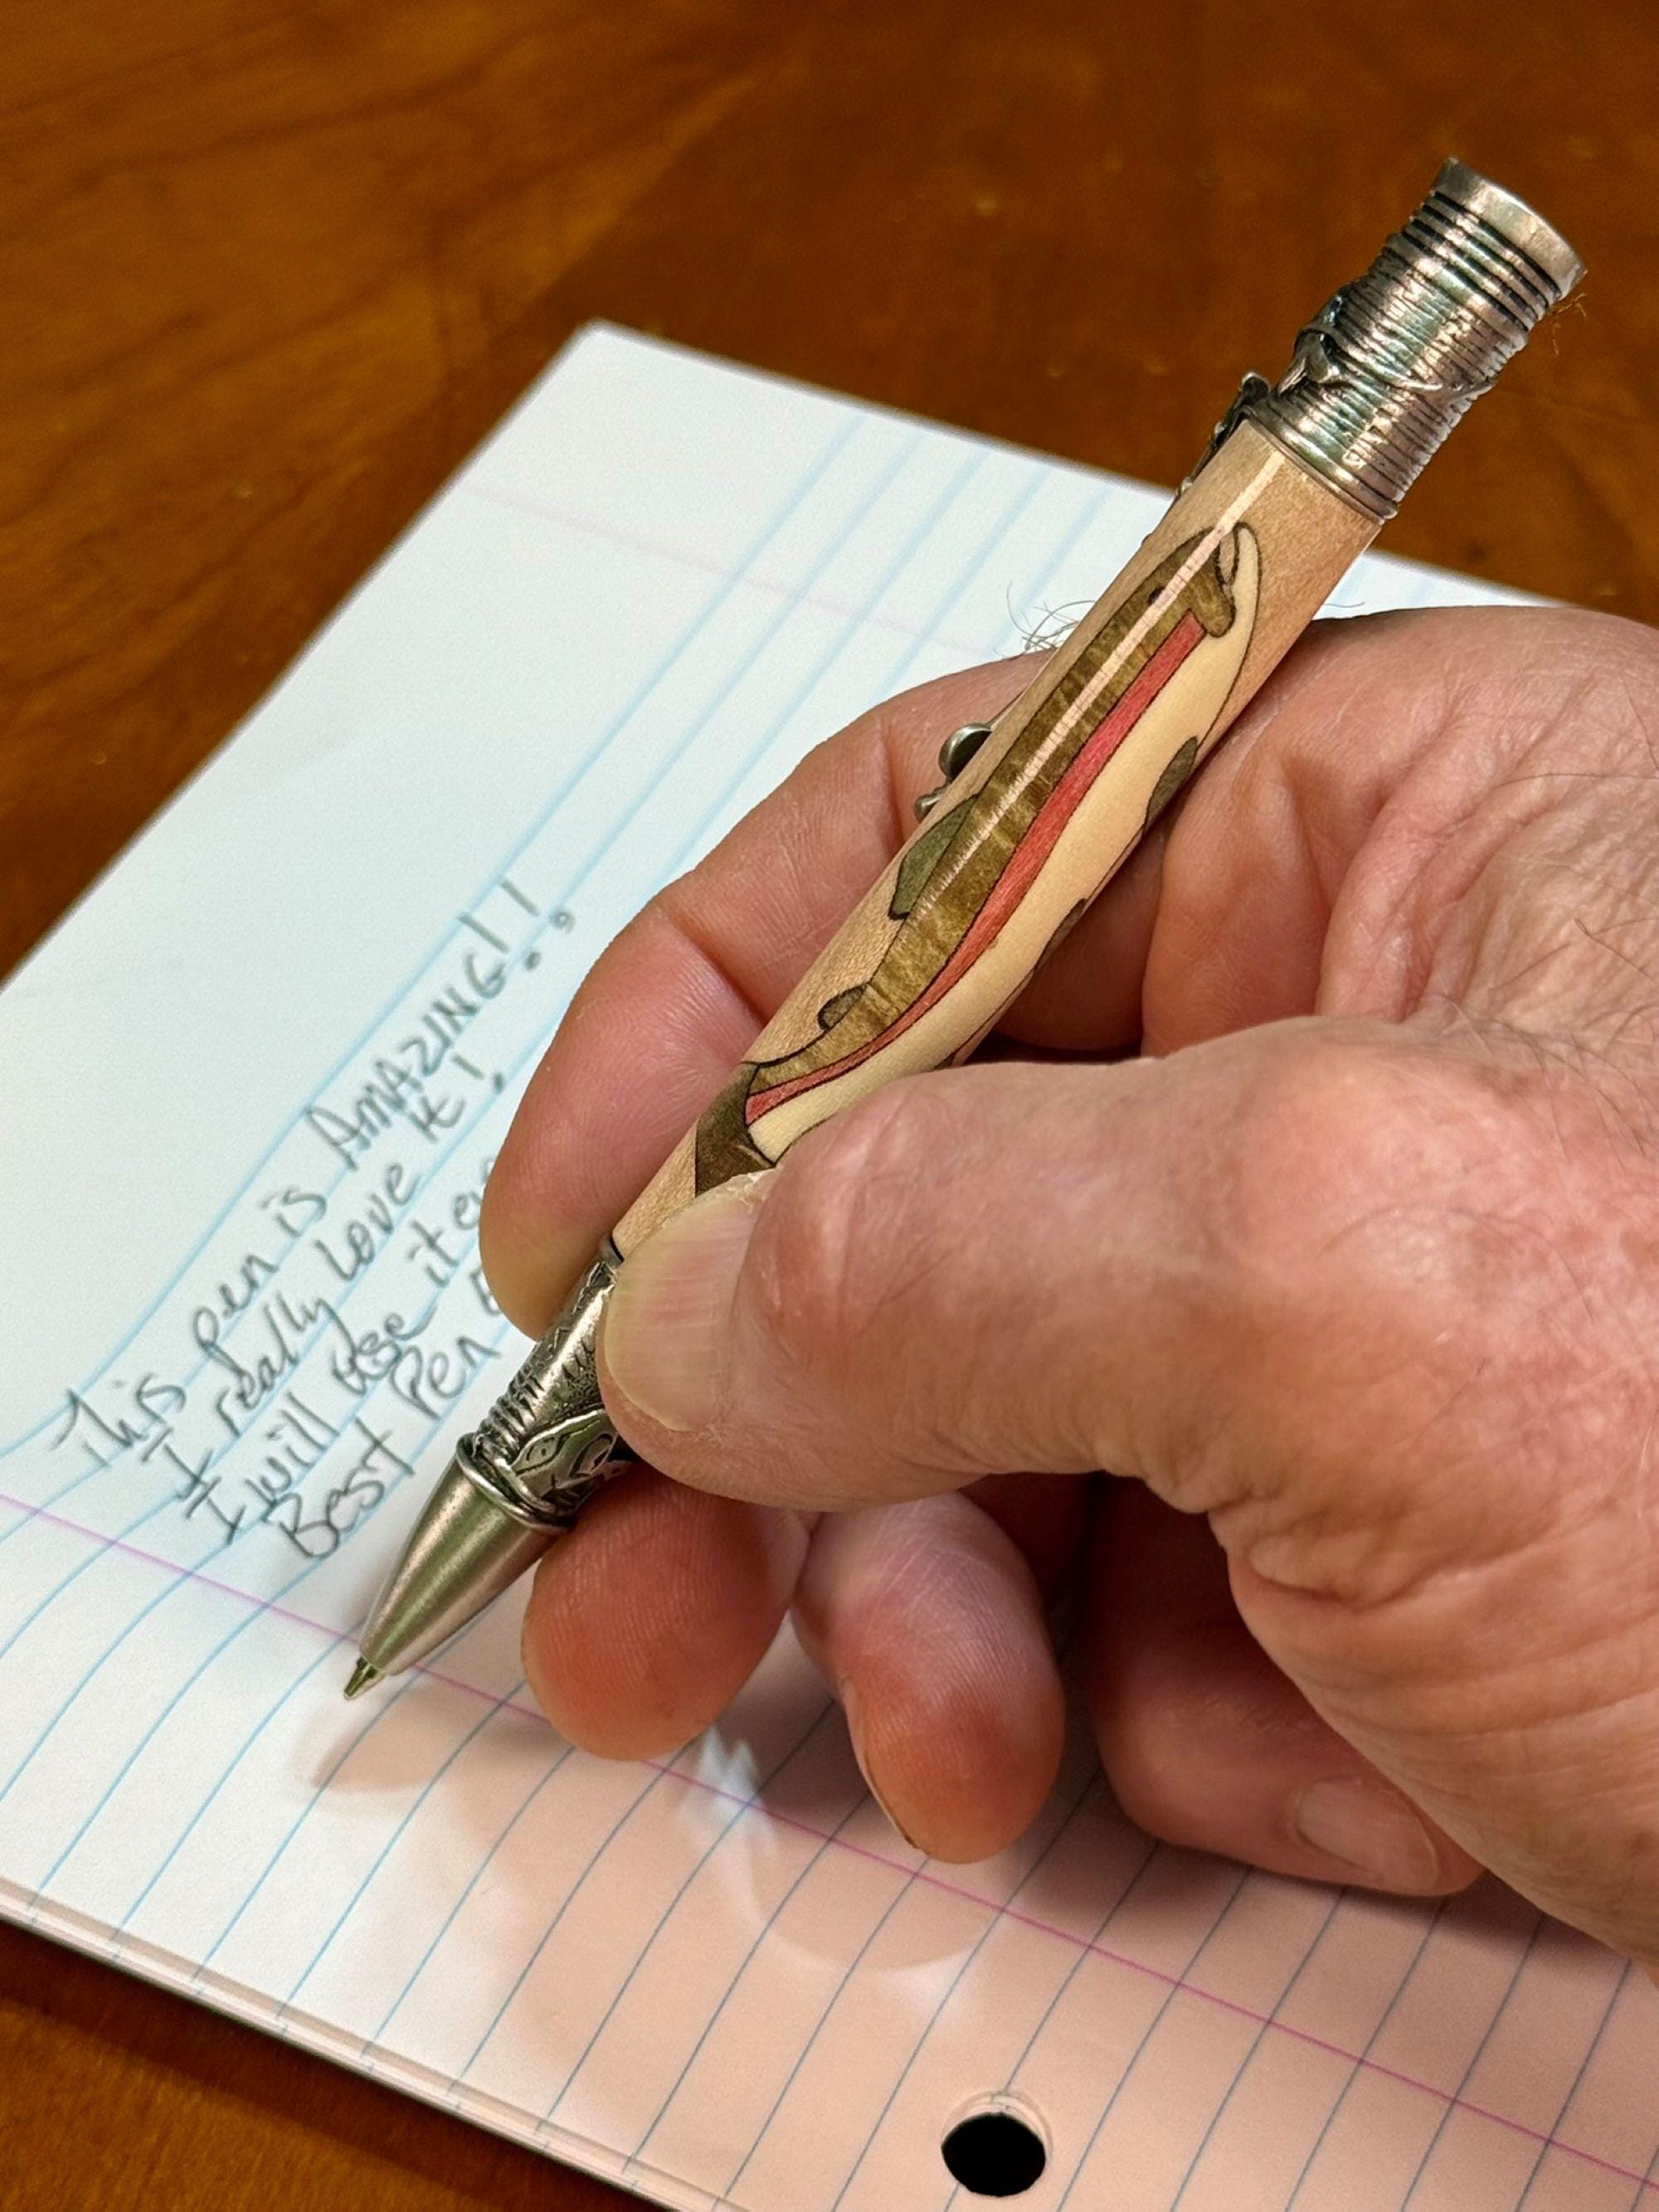 This pen is AMAZING!!
I really love it!
I will use it
Best Pen